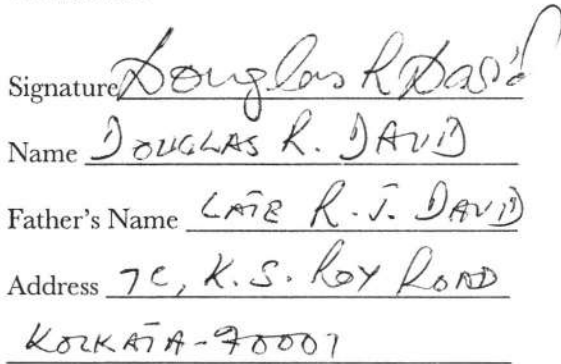 Signature Douglas R David
Name DOUGLAS R. DAVID
Father's Name LATE R. J. DAVID
Address 7C, K.S. ROY ROAD
KOLKATA-70001